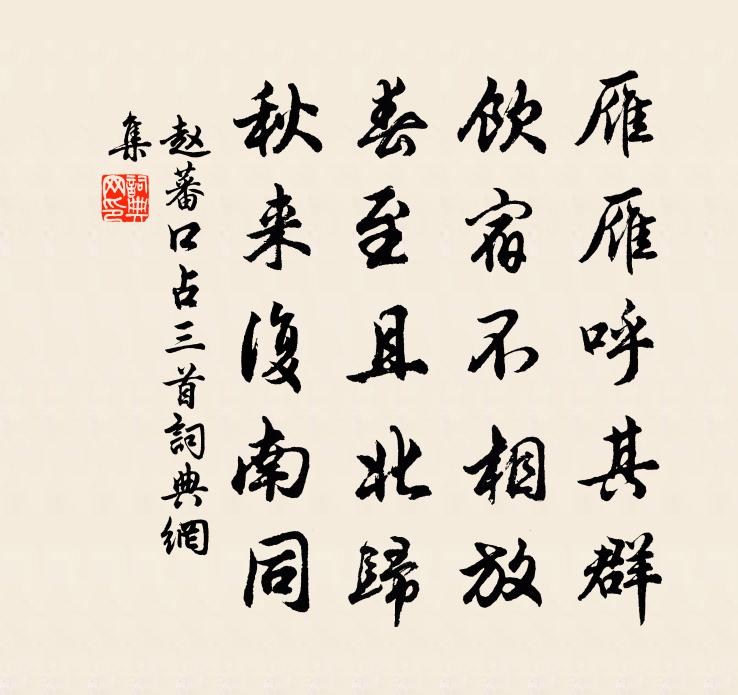 雁雁呼其群
飲宿不相放
春至且北歸
秋来復南同
赵蕃口占三首詞典網
集
詞典
网印